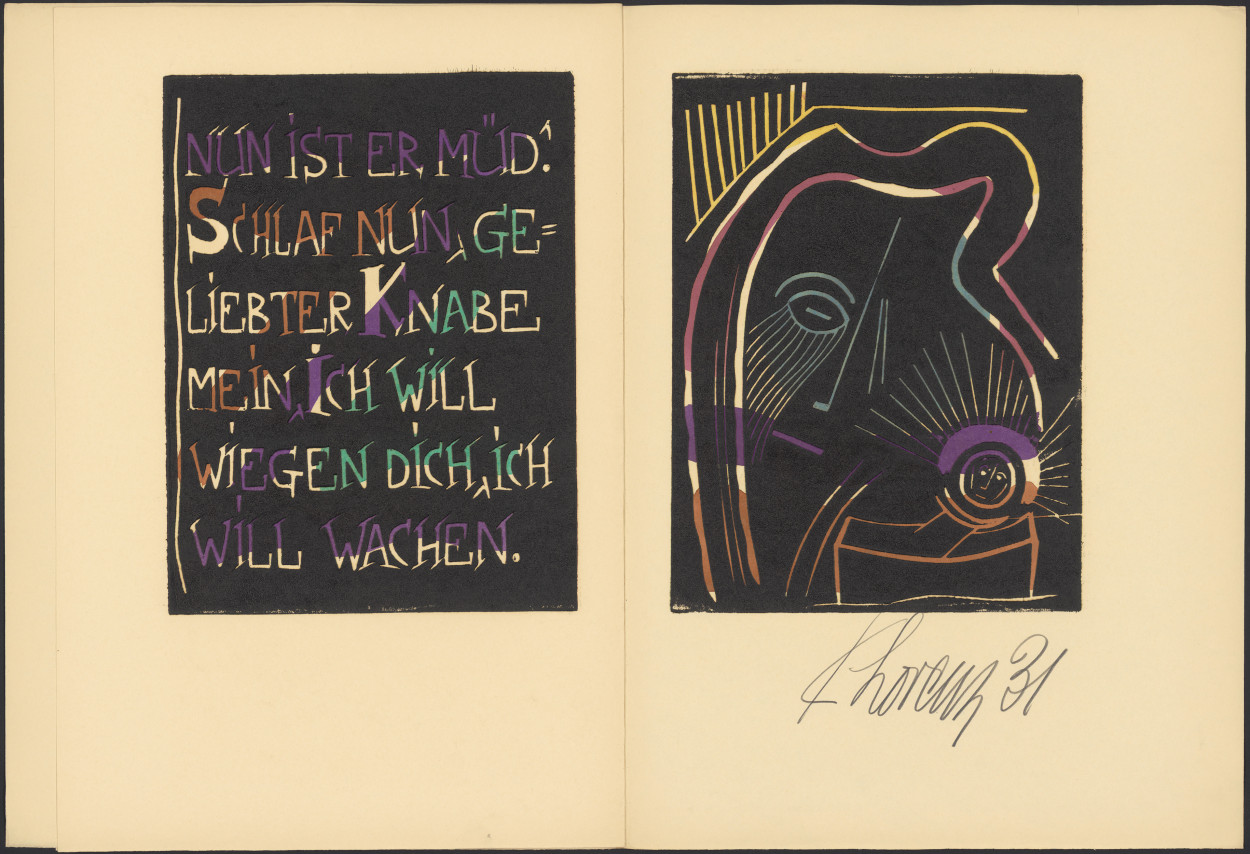 NUN IST ER MÜD:
SCHLAF NUN, GE=
LIEBTER KNABE
MEIN, ICH WILL
WIEGEN DICH, ICH
WILL WACHEN.
K Lorenz 31